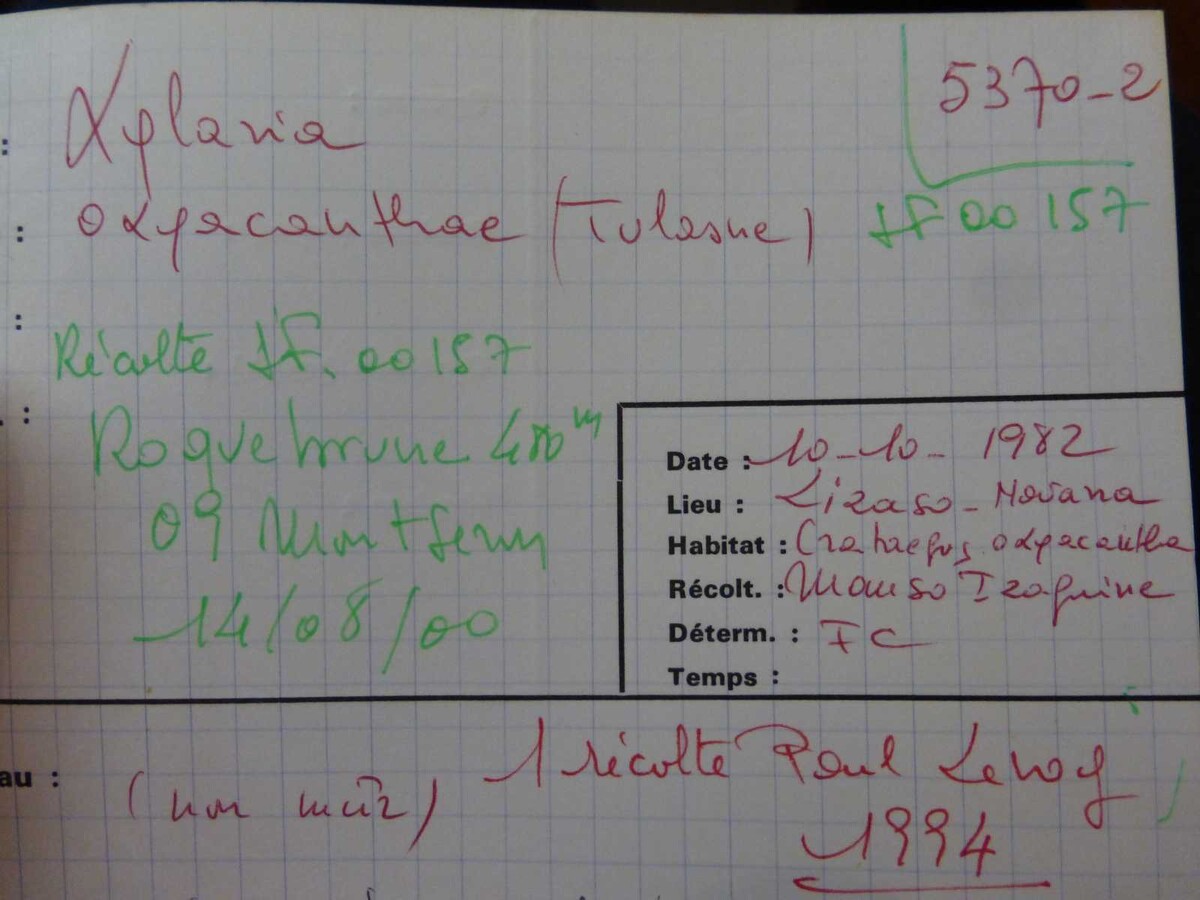 5370-2
: Xylaria
: oxyacanthae (Tulasne) JF 00 157
:
Récolte JF. 00157
. : Roquebrune 400m
09 Montferm
14/08/00
Date : 10-10-1982
Lieu : Lizaso-Navarra
Habitat : Crataegus oxyacantha
Récolt. : Izaguirre
Déterm. : FC
Temps :
au : (non mûr) 1 récolte Paul Leroy
1994